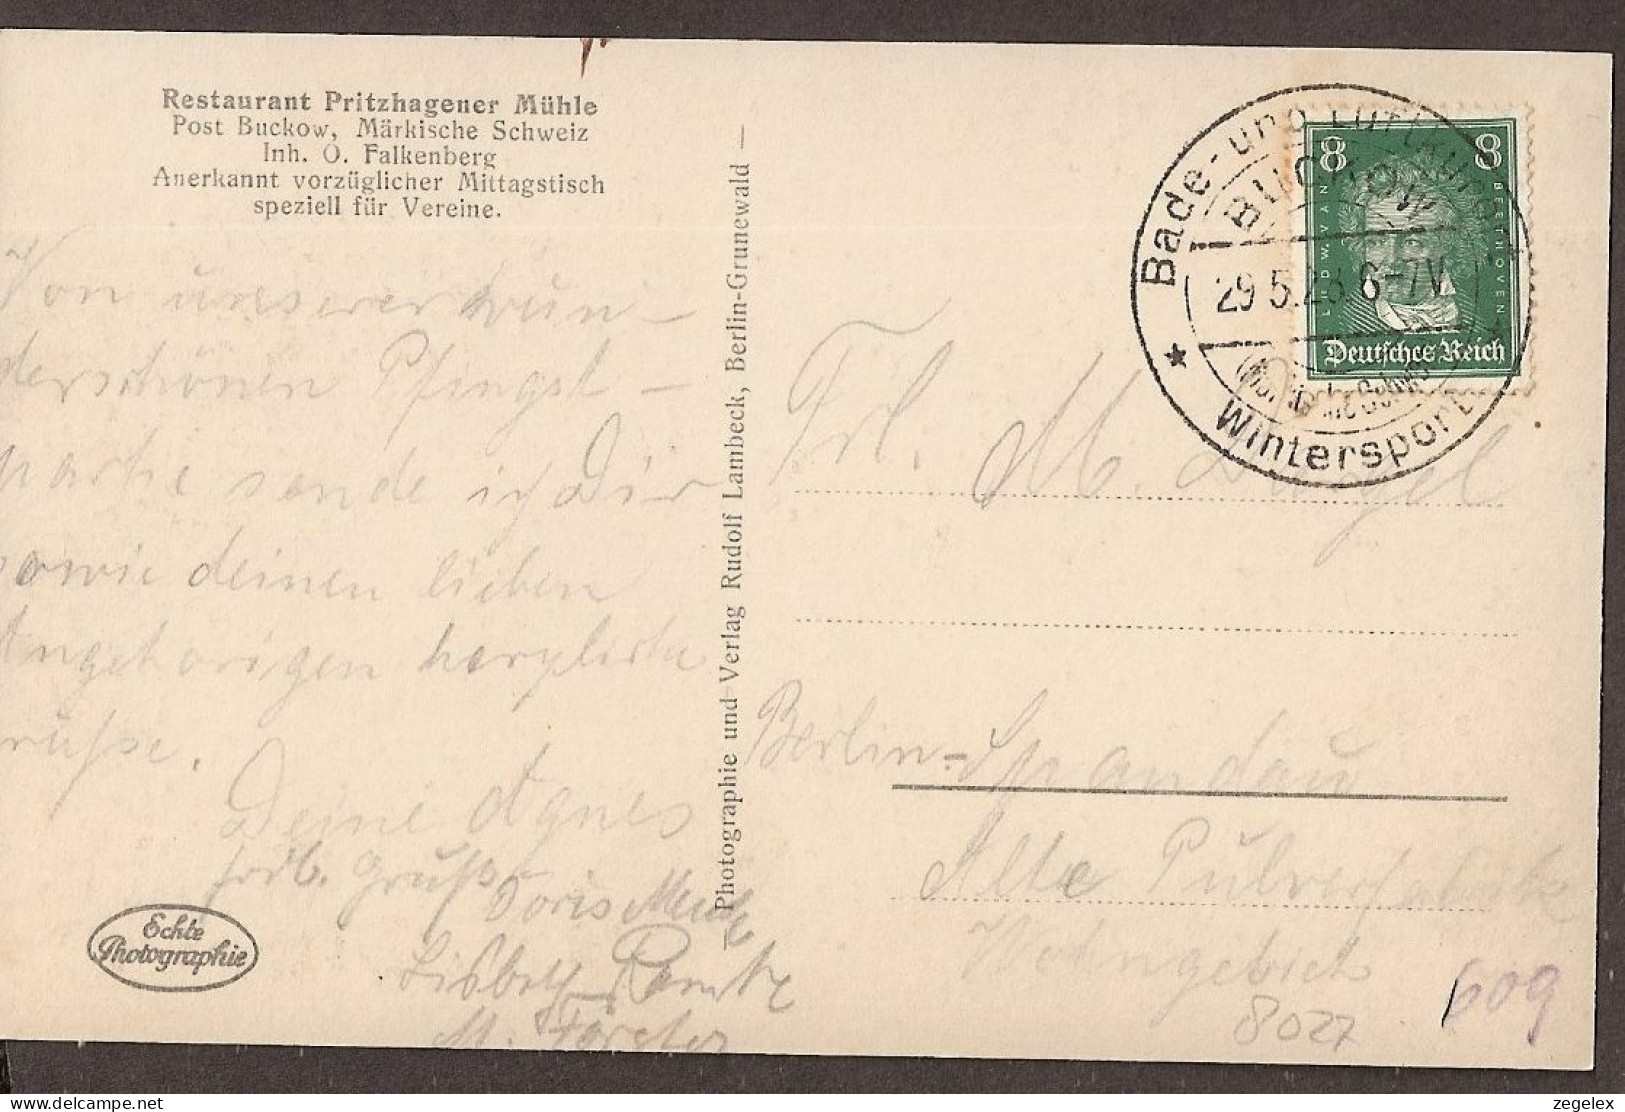 Restaurant Pritzhagener Mühle
Post Buckow, Märkische Schweiz
Inh. O. Falkenberg
Anerkannt vorzüglicher Mittagstisch
speziell für Vereine.
Von unserer wun-
derschönen Pfingst-
partie sende ich Dir
sowie deinen lieben
Angehörigen herzliche
Grüße.
Deine Agnes
Gruß
Doris
M. Förster
Echte
Photographie
Photographie und Verlag Rudolf Lambeck, Berlin-Grunewald —
Bade- und Luftkurort
BUCKOW
29.5.28. 6-7V
(Märkische Schweiz)
Wintersport
8 8
LUDW. VAN BEETHOVEN
Deutsches Reich
Frl. M.
Berlin-Spandau
Alte Pulverfabrik
8027
609
zegelex